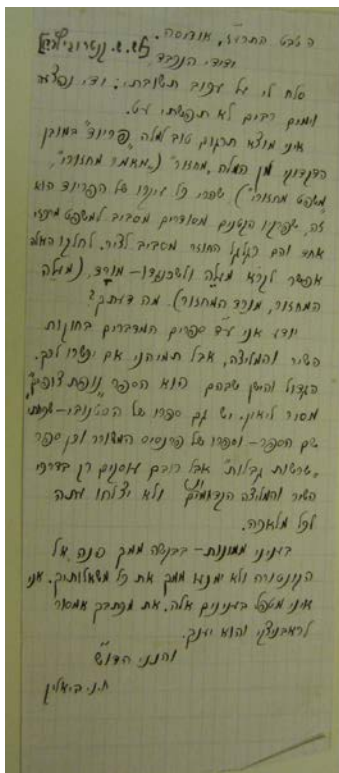 ה טבת התרע"ז, אודיסה.
ידידי הנכבד
סלח לי על עכוב תשובתי: ידי נפצעה
וימים רבים לא תפשתי עט.
איני מוצא תרגום טוב למלה "פריוד" במובן
הדקדוקי מן המלה "מחזור" ("מאמר מחזורי",
"משפט מחזורי") שהרי כל עיקרו של הפריוד הוא
זה, שפרקיו הקטנים מסודרים מסביב למשפט מרכזי
אחד והם כגלגל החוזר מסביב לציר. לחלקו האלף
אפשר לקרא מעלה ולשכנגדו – מורד, (מעלה
המחזור, מורד המחזור). מה דעתך?
יודע אני עד ספרים המדברים בחוקות
השיר והמליצה, אבל תמיהני אם יכשרו לכך.
הגדול והישן שבהם הוא הספר "נופת צופים"
מסיר ליאון. יש גם ספרו של – שכחתי
שם הספר – וספרו של פרנסיס המשורר וכן ספר
"שרשות גבלות" אבל רובם עוסקים רק בדרכי
השיר והמליצה הקדומים ולא יצלחו עתה
לכל מלאכה.
בעניני ממונות – בבקשה ממך פנה אל
הקונסורה ולא ימנעו ממך את כל משאלותיך. אני
איני מטפל בענינים אלה. את מכתבך אמסור
לראבניצקי והוא יענך.
והנני הדו"ש
ח.נ. ביאליק